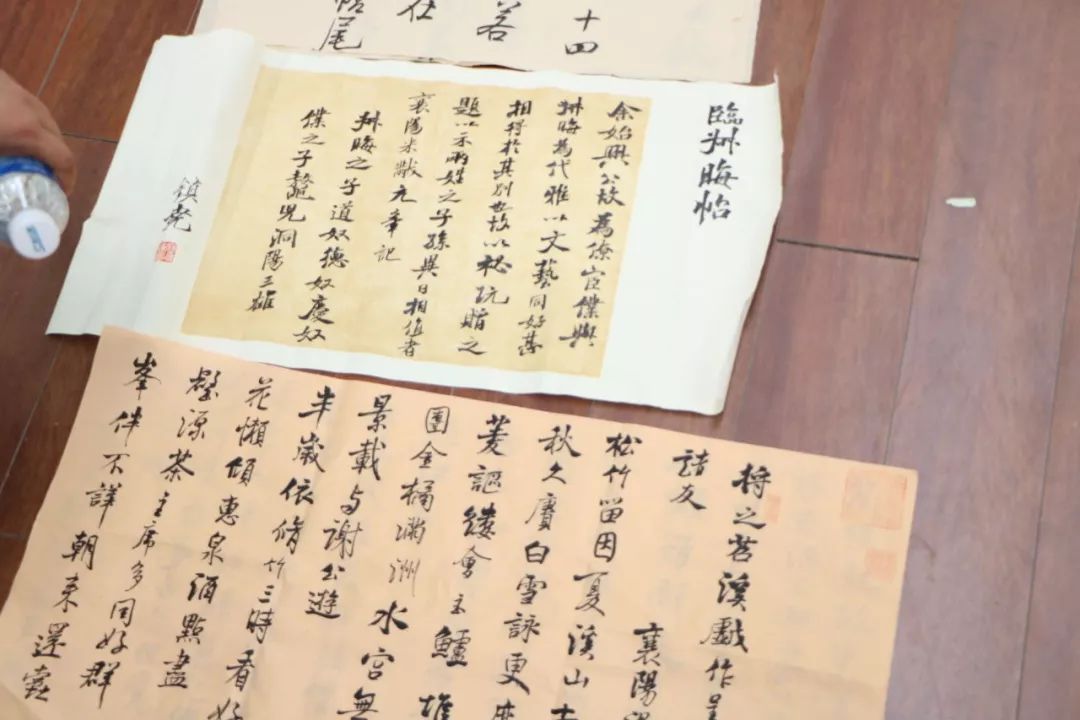 十四
若
仕
帖尾
臨叔晦帖
余始興公故為僚宦僕與
叔晦為代雅以文藝同好甚
相得於其別也故以秘玩贈之
題以示兩姓之子孫異日相值者
襄陽米黻元章記
叔晦之子道奴德奴慶奴
僕之子鰲兒洞陽三雄
鎮
將之苕溪戲作呈
諸友
襄陽
松竹留因夏溪山
秋久賡白雪詠更度
菱謳縷會主鱸堆
團金橘滿洲水宮無
景載与謝公遊
半歲依脩竹三時看好
花懶傾惠泉酒點盡
壑源茶主席多同好群
峯伴不譁朝来還蠹